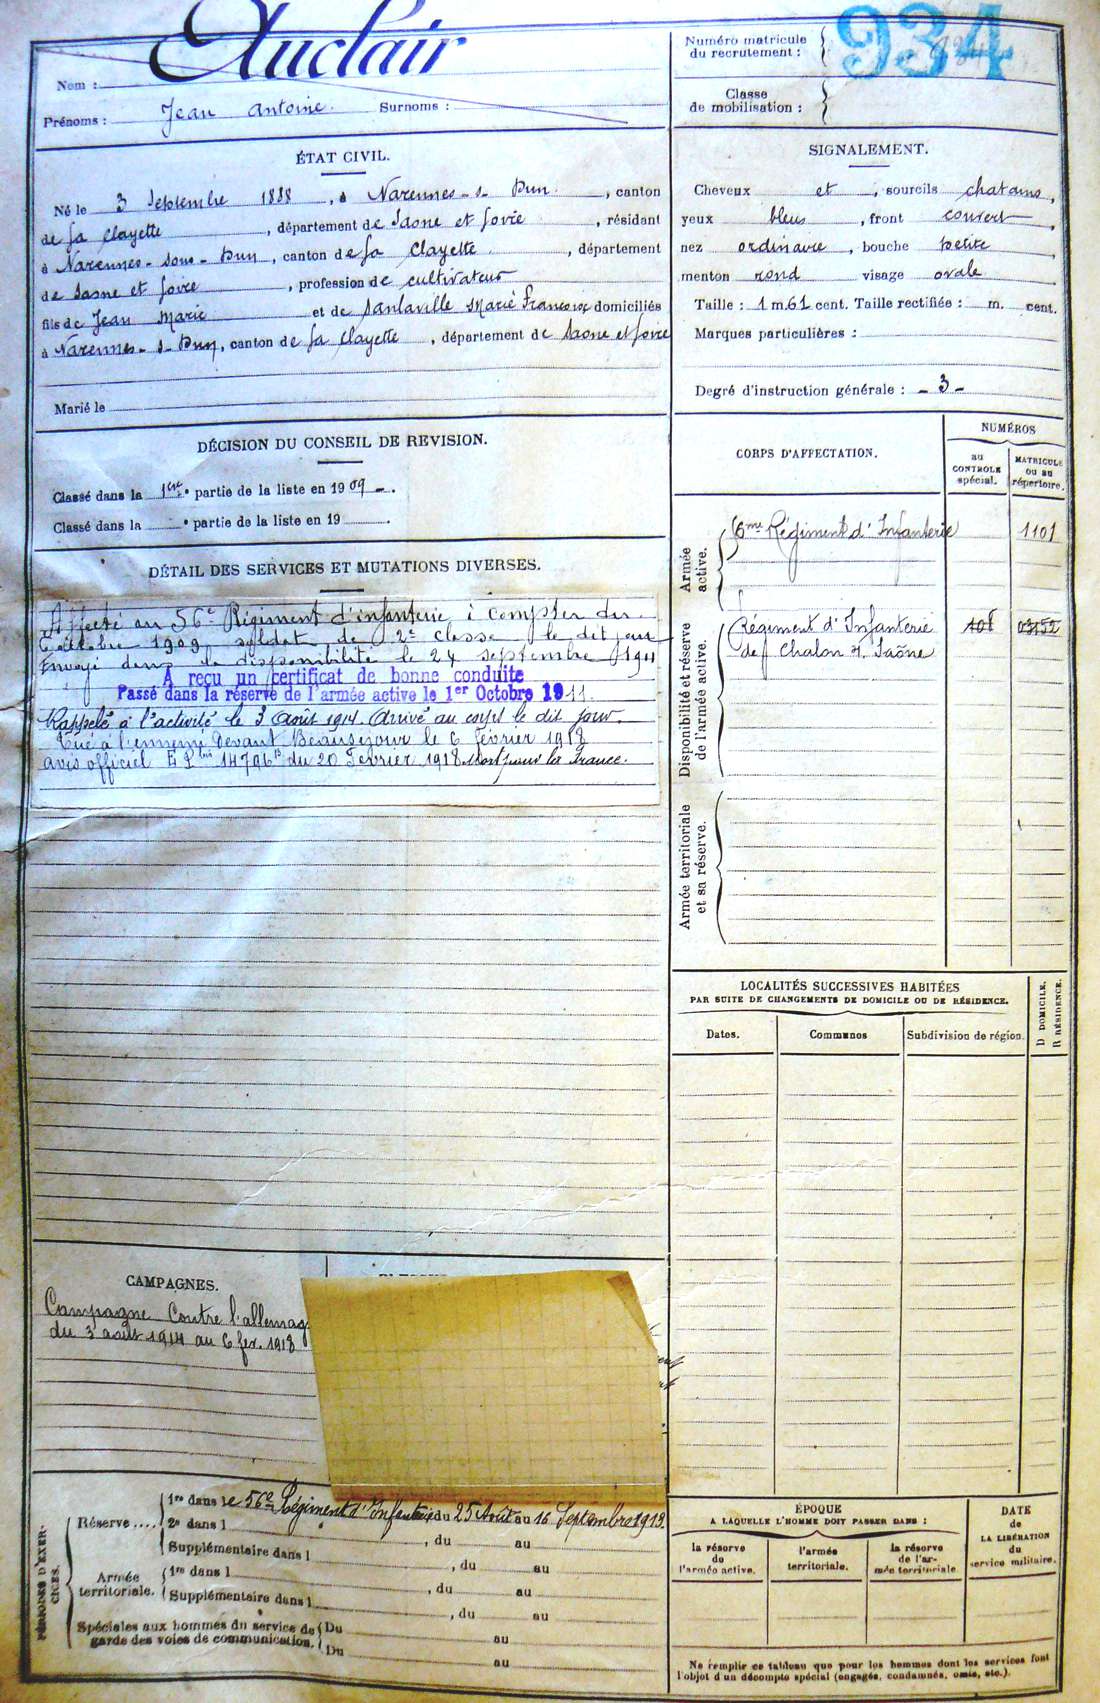 Auclair
Nom :
Prénoms : Jean Antoine Surnoms :
Numéro matricule
du recrutement :
934
Classe
de mobilisation :
ÉTAT CIVIL.
Né le 3 Septembre 1888, à Varennes-s-Dun, canton
de La Clayette, département de Saone et Loire, résidant
à Varennes-sous-Dun, canton de La Clayette, département
de Saone et Loire, profession de cultivateur
fils de Jean Marie et de Sanlaville Marie Françoise domiciliés
à Varennes-s-Dun, canton de La Clayette, département de Saone et Loire
Marié le
SIGNALEMENT.
Cheveux et, sourcils chatains,
yeux bleus, front couvert,
nez ordinaire, bouche petite
menton rond visage ovale
Taille : 1 m 61 cent. Taille rectifiée : m. cent.
Marques particulières :
Degré d'instruction générale : - 3 -
DÉCISION DU CONSEIL DE REVISION.
Classé dans la 1ere partie de la liste en 1909 -.
Classé dans la e partie de la liste en 19
DÉTAIL DES SERVICES ET MUTATIONS DIVERSES.
Affecté au 56e Régiment d'infanterie à compter du
6 octobre 1909 soldat de 2e classe le dit jour
Envoyé dans la disponibilité le 24 septembre 1911
A reçu un certificat de bonne conduite
Passé dans la réserve de l'armée active le 1er Octobre 1911.
Rappelé à l'activité le 3 Août 1914 Arrivé au corps le dit jour.
Tué à l'ennemi devant Beauséjour le 6 février 1918
avis officiel du 20 Février 1918 Mort pour la France.
CORPS D'AFFECTATION.
NUMÉROS
au
CONTROLE
spécial.
MATRICULE
ou au
répertoire.
Armée
active.
56me Régiment d'Infanterie 1101
Disponibilité et réserve
de l'armée active.
Régiment d'Infanterie
de Chalon s. Saône
Armée territoriale
et sa réserve.
LOCALITÉS SUCCESSIVES HABITÉES
PAR SUITE DE CHANGEMENTS DE DOMICILE OU DE RÉSIDENCE.
Dates. Communes Subdivision de région.
D DOMICILE.
R RÉSIDENCE.
CAMPAGNES.
Campagne Contre l'allemag
du 3 août 1914 au 6 fev. 1918
PÉRIODES D'EXER-
CICES.
Réserve....
1re dans le 56e Régiment d'Infanterie du 25 Août au 16 Septembre 1913.
2e dans l , du au
Supplémentaire dans l , du au
Armée
territoriale.
1re dans l , du au
Supplémentaire dans l , du au
Spéciales aux hommes du service de
garde des voies de communication.
Du au
Du au
ÉPOQUE
A LAQUELLE L'HOMME DOIT PASSER DANS :
la réserve
de
l'armée active.
l'armée
territoriale.
la réserve
de l'ar-
mée territoriale
DATE
de
LA LIBÉRATION
du
service militaire.
Ne remplir ce tableau que pour les hommes dont les services font
l'objet d'un décompte spécial (engagés, condamnés, omis, etc.).